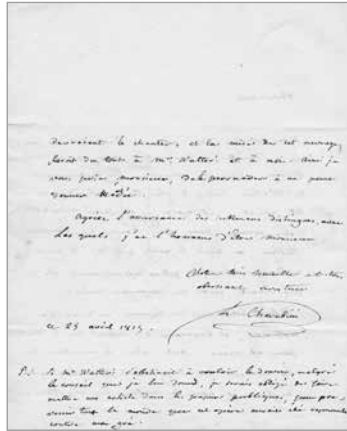 devraient le chanter, et la mise de cet ouvrage,
ferait du tort à Mr. Walter et à moi. Ainsi je
vous prie, monsieur, de le persuader à ne point
donner Médée.
Agréez l'assurance des sentimens distingués, avec
les quels j'ai l'honneur d'être monsieur
Votre très humble et très
obéissant serviteur
L. Cherubini
ce 25 avril
P.S. Si Mr Walter s'obstinait à vouloir le donner, malgré
le conseil que je lui donne, je serais obligé de faire
mettre un article dans les papiers publiques, pour pré
venir tout le monde que cet opéra aurait été représenté
contre mon gré.